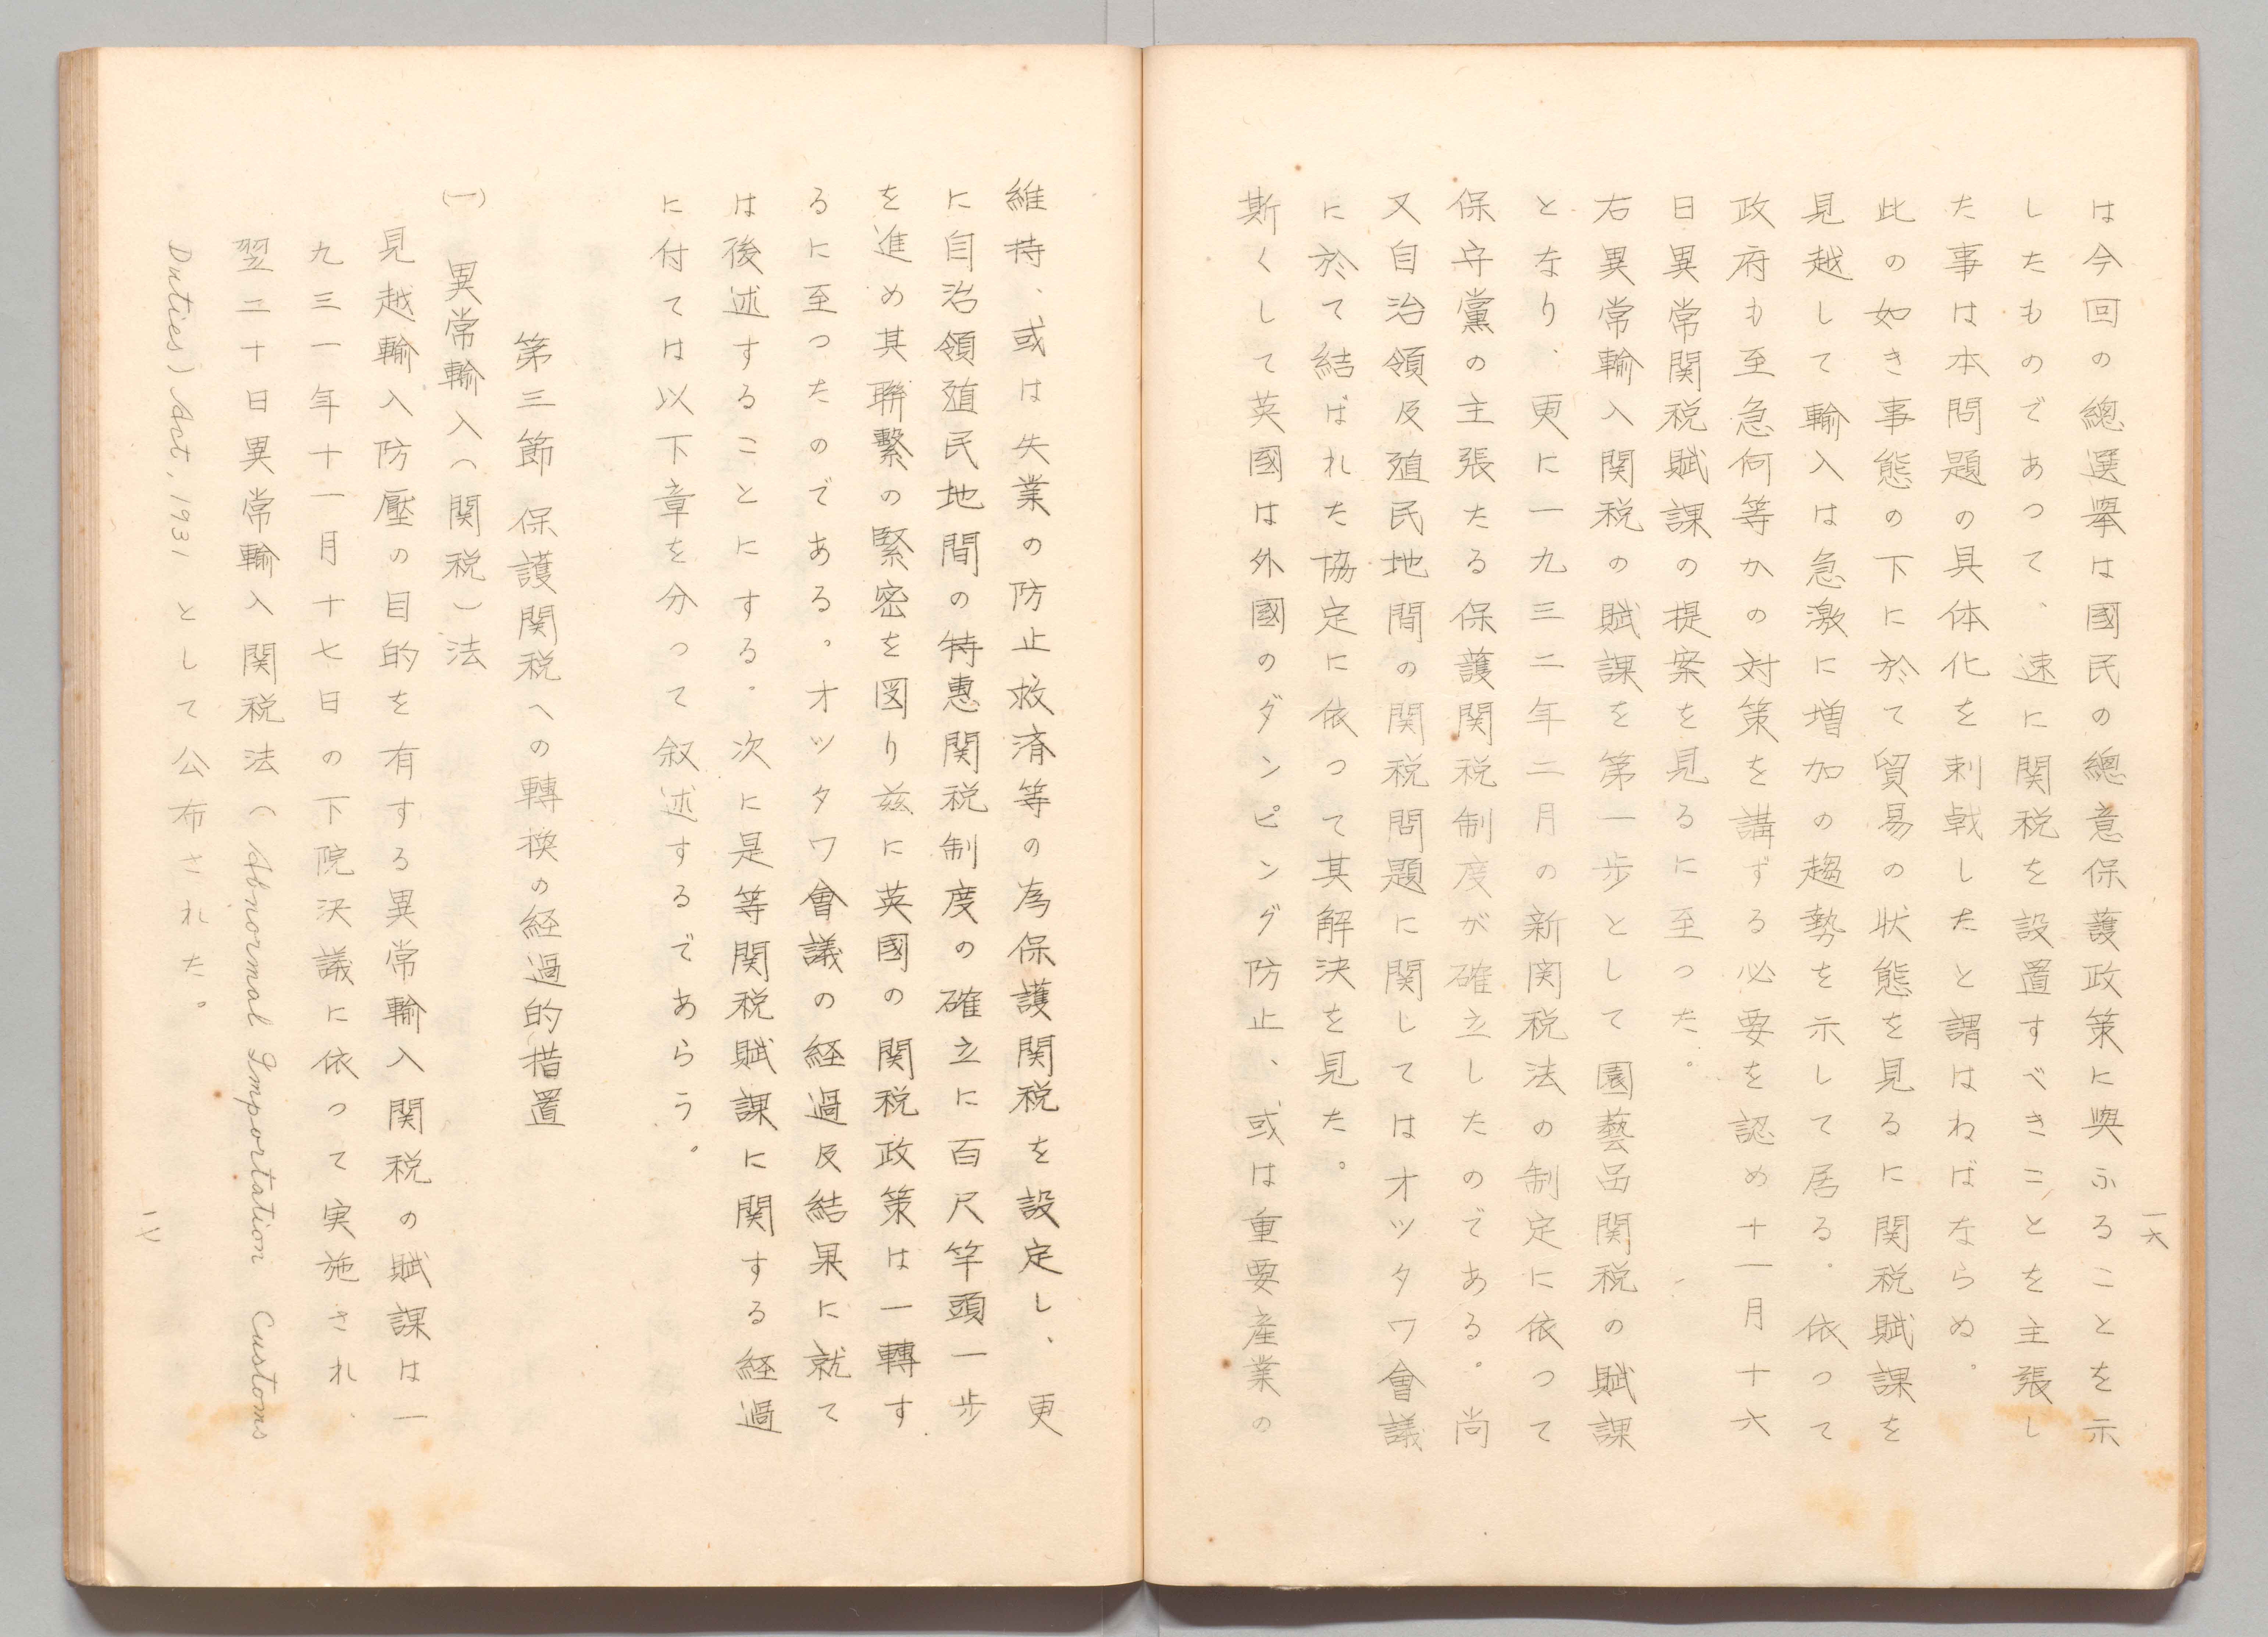 は今回の總選擧は國民の總意保護政策に與ふることを示
したものであつて、速に関税を設置すべきことを主張し
た事は本問題の具体化を刺戟したと謂はねばならぬ。
此の如き事態の下に於て貿易の状態を見るに関税賦課を
見越して輸入は急激に増加の趨勢を示して居る。依つて
政府も至急何等かの対策を講ずる必要を認め十一月十六
日異常関税賦課の提案を見るに至つた。
右異常輸入関税の賦課を第一歩として園藝品関税の賦課
となり、更に一九三二年二月の新関税法の制定に依つて
保守黨の主張たる保護関税制度が確立したのである。尚
又自治領及殖民地間の関税問題に関してはオツタワ會議
に於て結ばれた協定に依つて其解決を見た。
斯くして英國は外國のダンピング防止、或は重要産業の
一六
維持、或は失業の防止救済等の為保護関税を設定し、更
に自治領殖民地間の特惠関税制度の確立に百尺竿頭一歩
を進め其聯繋の緊密を図り茲に英國の関税政策は一轉す
るに至つたのである。オツタワ會議の経過及結果に就て
は後述することにする。次に是等関税賦課に関する経過
に付ては以下章を分つて叙述するであらう。
第三節 保護関税への轉換の経過的措置
(一) 異常輸入(関税)法
見越輸入防壓の目的を有する異常輸入関税の賦課は一
九三一年十一月十七日の下院決議に依つて実施され、
翌二十日異常輸入関税法(Abnormal Importation Customs
Duties) Act, 1931 として公布された。
一七